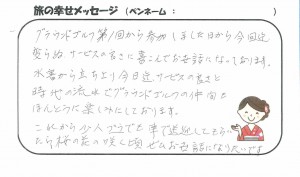 旅の幸せメッセージ (ペンネーム：　　　　)
グラウンドゴルフ第1回から参加しました日から今回迄
変らぬサービスの良さに喜こんでお世話になっております。
水害から立ち上り今日迄サービスの良さと
時代の流れでグラウンドゴルフの仲間も
ほんとうに楽しみにしております。
これから少人プラでも車で送迎してもらい
たら桜の花の咲く頃ぜひお世話になりたいです